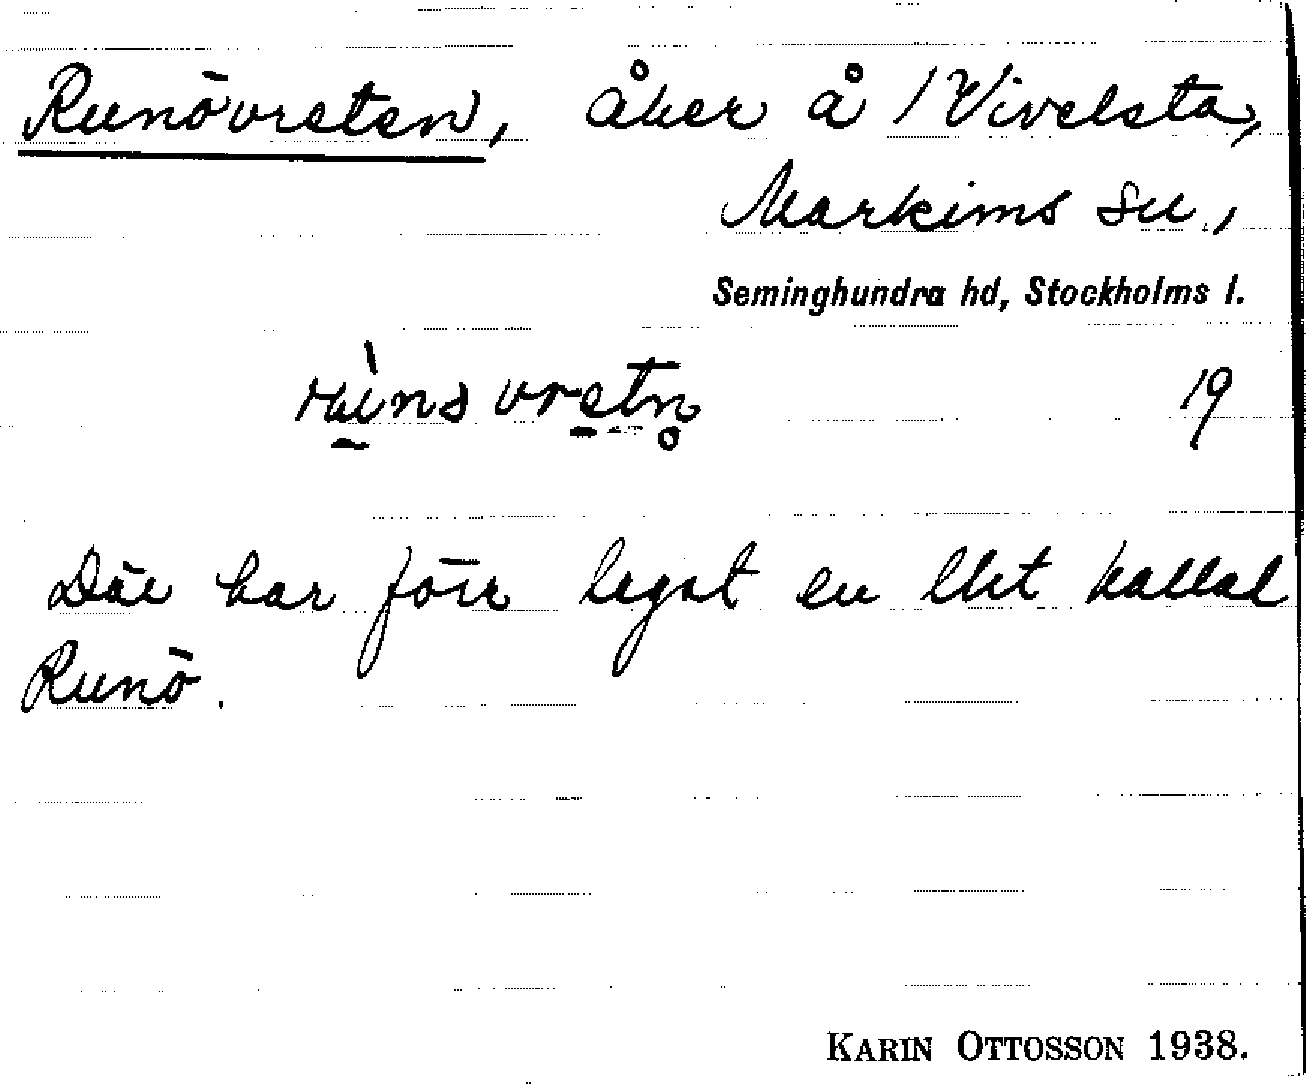 Runövreten, åker å 1 Vivelsta,
Markims sn.,
Seminghundra hd, Stockholms l.
19
Där har förr legat en lht kallad
Runö.
KARIN OTTOSSON 1938.